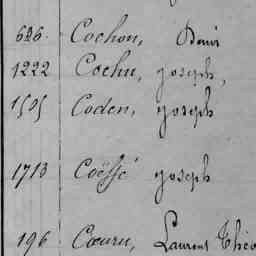 626. Cochon, Denis
1222 Cochu, joseph,
1505 Coden, joseph
1713 Coëffé joseph
196 Cœuru, Laurent Théo